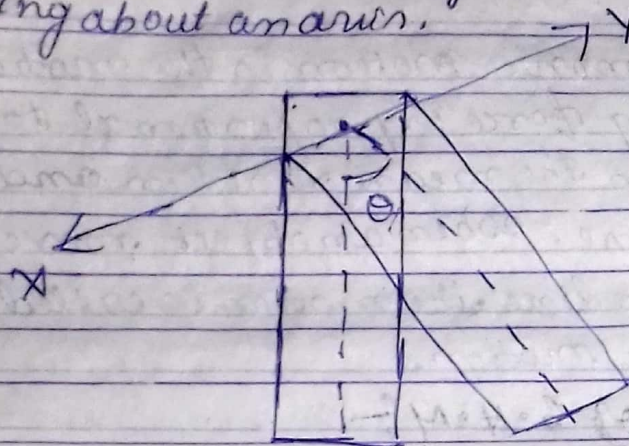 ing about an axis.
Y
θ
X